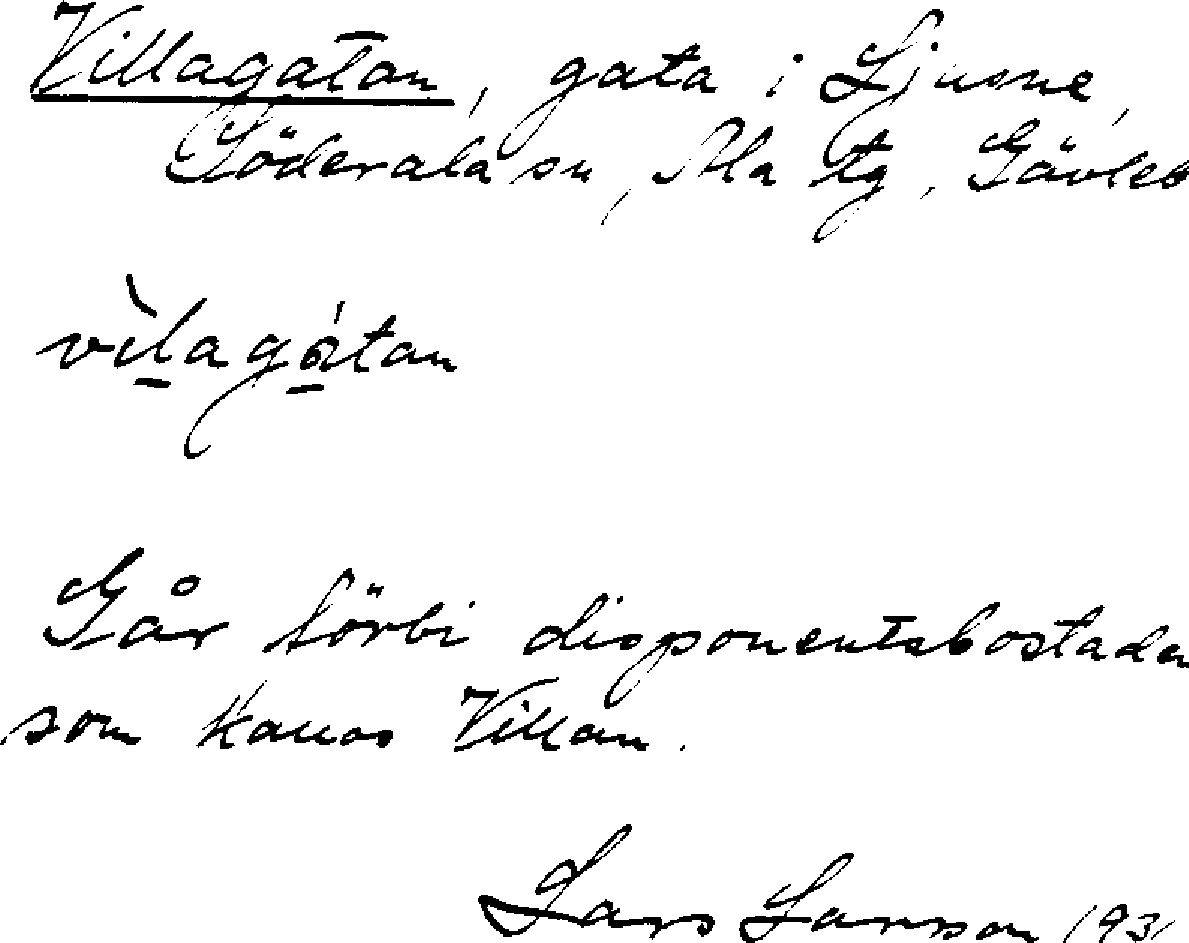 Villagatan, gata i Ljusne,
Söderala sn, Ala tg, Gävleb
vìlagátan
Går förbi disponentsbostaden
som kallas Villan.
Lars Larsson 1931